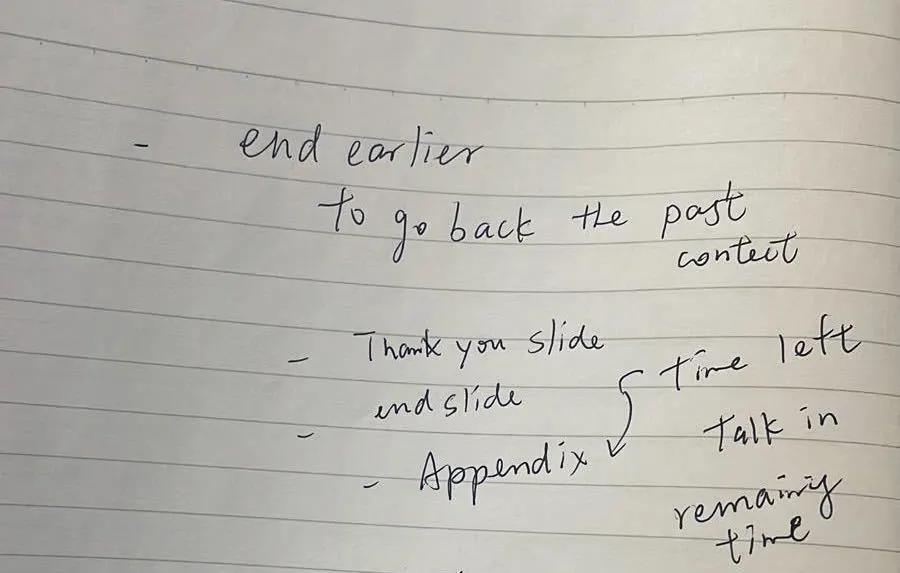 - end earlier
to go back the past
contect
- Thank you slide
end slide
-
- Appendix
time left
talk in
remaining
time